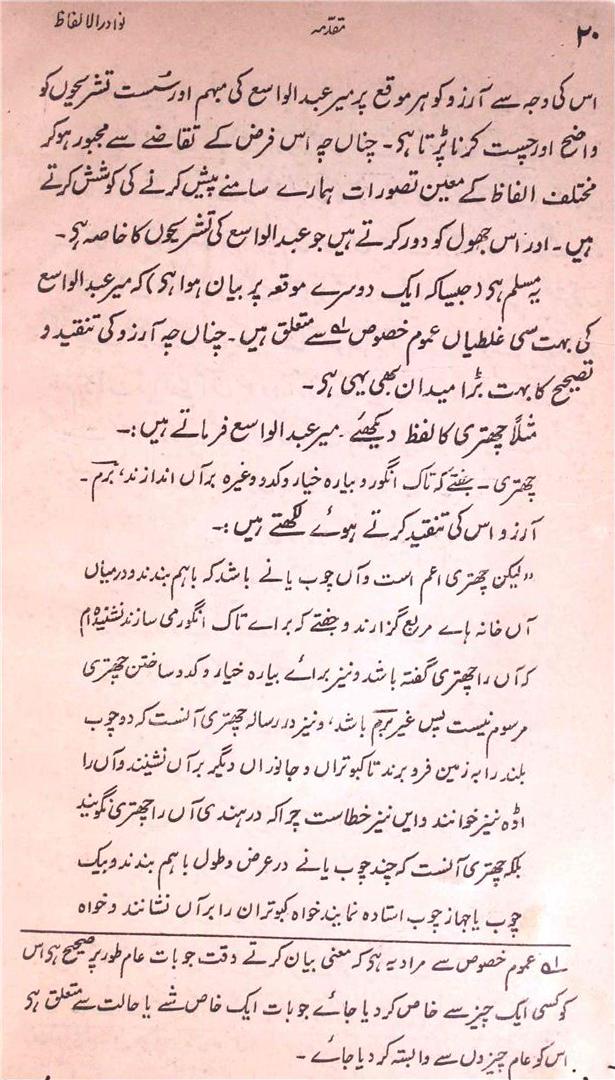 ۲۰ مقدّمہ نوادرالالفاظ
اس کی وجہ سے آرزو کو ہر موقع پر میر عبدالواسع کی مبہم اور سُست تشریحوں کو
واضح اور چست کرنا پڑتا ہی۔ چناں چہ اس فرض کے تقاضے سے مجبور ہوکر
مختلف الفاظ کے معین تصورات ہمارے سامنے پیش کرنے کی کوشش کرتے
ہیں۔ اور اس جھول کو دور کرتے ہیں جو عبدالواسع کی تشریحوں کا خاصہ ہی۔
یہ مسلم ہی (جیسا کہ ایک دوسرے موقعہ پر بیان ہوا ہی) کہ میر عبدالواسع
کی بہت سی غلطیاں عموم خصوص لہ سے متعلق ہیں۔ چناں چہ آرزو کی تنقید و
تصحیح کا بہت بڑا میدان بھی یہی ہی۔
مثلاً چھتری کا لفظ دیکھئے۔ میر عبدالواسع فرماتے ہیں:۔
چھتری۔ جفتے کہ تاک انگور و بیارہ خیار و کدو وغیرہ برآں اندازند، برم۔
آرزو اس کی تنقید کرتے ہوئے لکھتے ہیں:۔
"لیکن چھتری اعم است وآں چوب یا نے باشد کہ باہم بندند و درمیاں
آں خانہ ہاے مربع گزارند و جفتے کہ براے تاک انگور می سازند نشنیدہ ام
کہ آں را چھتری گفتہ باشد و نیز برائے بیارہ خیار و کدو ساختن چھتری
مرسوم نیست پس غیر برم باشد، و نیز در رسالہ چھتری آنست کہ دو چوب
بلند را بہ زمین فرو برند تا کبوتراں و جانوراں دیگر برآں نشینند و آں را
اڈہ نیز خوانند و ایں نیز خطاست چراکہ در ہندی آں را چھتری نگویند
بلکہ چھتری آنست کہ چند چوب یا نے در عرض و طول باہم بندند و بیک
چوب یا چہار چوب استادہ نمایند خواہ کبوتران را برآں نشانند و خواہ
لہ عموم خصوص سے مراد یہ ہی کہ معنی بیان کرتے وقت جو بات عام طور پر صحیح ہی اس
کو کسی ایک چیز سے خاص کر دیا جائے جو بات ایک خاص شے یا حالت سے متعلق ہی
اس کو عام چیزوں سے وابستہ کر دیا جائے۔